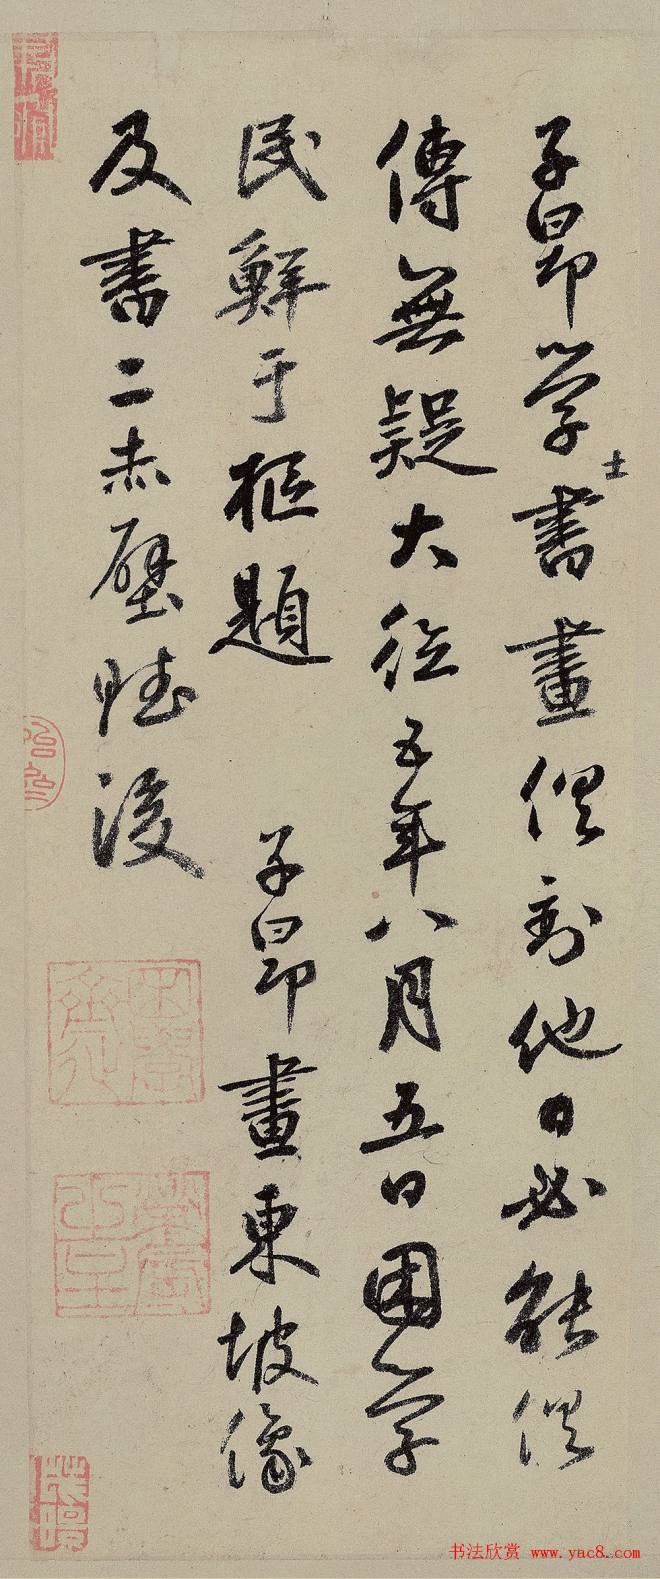 子昂学士書畫俱到他日必能俱
傳無疑大德五年八月五日困学
民鮮于樞題　子昂畫東坡像
及書二赤壁賦後
书法欣赏 www.yac8.com